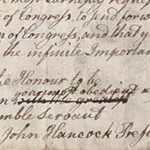 of Congress, to send forw
of Congress, and that y
the infinite Importan
the Honour to be
your most obedient a
with the greatest
mble Servant
John Hancock Presi